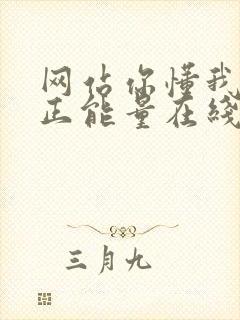 网站你懂我
正能量在线
三月九